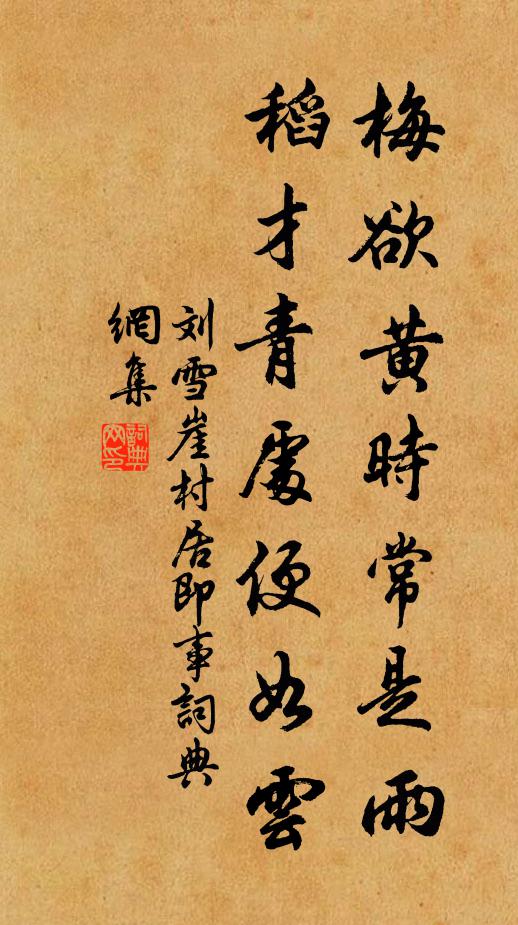 梅欲黄時常是雨
稻才青處便如雲
刘雪崖村居即事詞典
網集
詞典網印